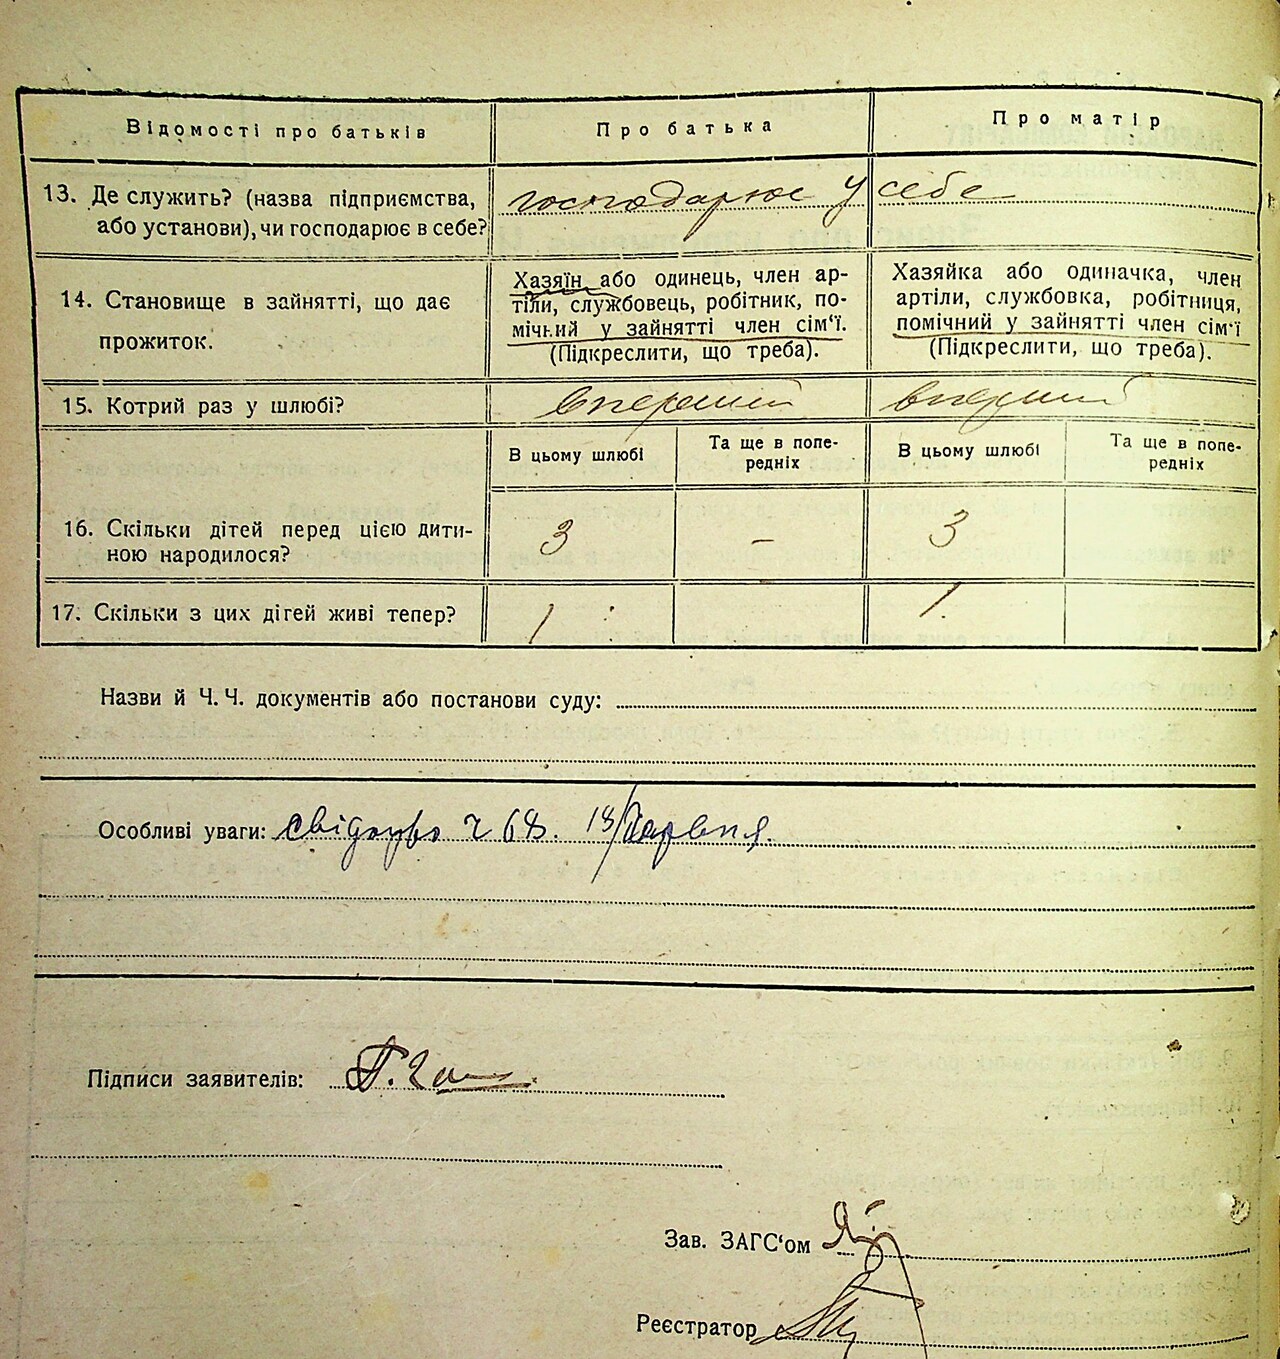 Відомості про батьків Про батька Про матір
13. Де служить? (назва підприємства, або установи), чи господарює в себе?
господарює у себе
14. Становище в зайнятті, що дає прожиток.
Хазяїн або одинець, член ар-
тіли, службовець, робітник, по-
мічний у зайнятті член сім'ї.
(Підкреслити, що треба).
Хазяйка або одиначка, член
артіли, службовка, робітниця,
помічний у зайнятті член сім'ї
(Підкреслити, що треба).
15. Котрий раз у шлюбі? вперший вперший
В цьому шлюбі Та ще в попе-
редніх
В цьому шлюбі Та ще в попе-
редніх
16. Скільки дітей перед цією дити-
ною народилося?
3 - 3
17. Скільки з цих дігей живі тепер? 1 1
Назви й Ч. Ч. документів або постанови суду:
Особливі уваги: ч 68. 18/червня.
Підписи заявителів:
Зав. ЗАГС'ом
Реєстратор